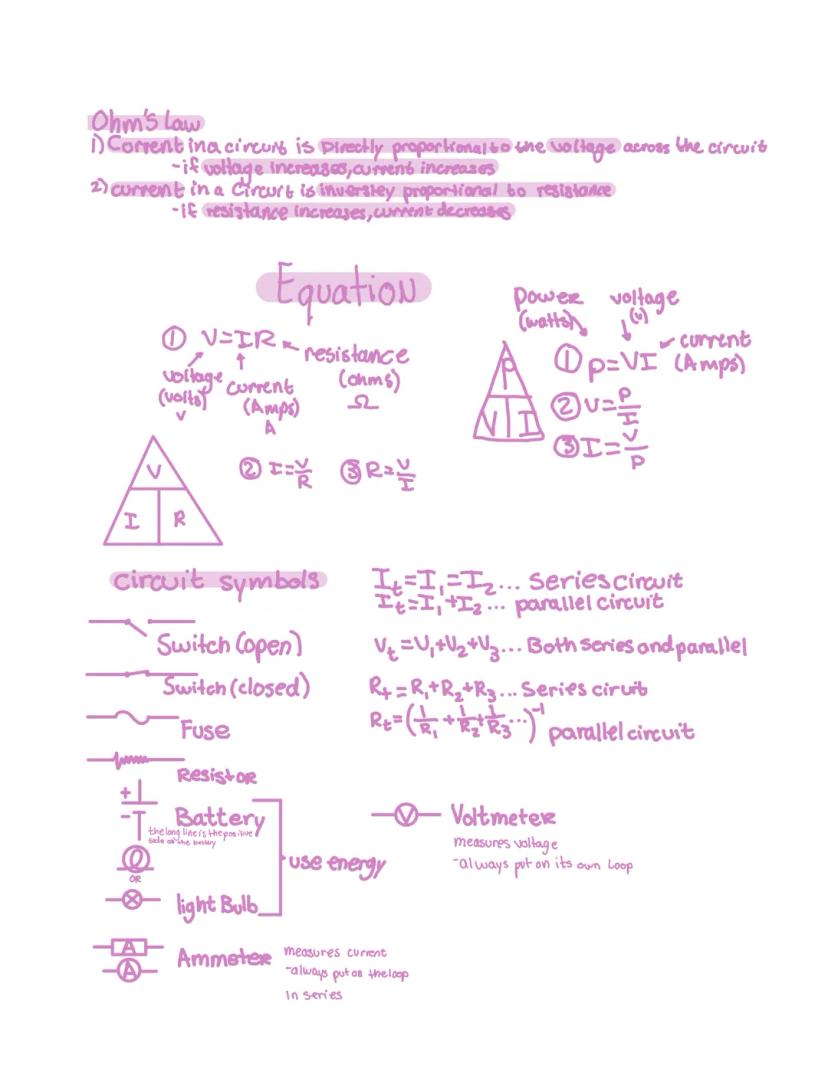 Ohm's Law
1) Current in a circuit is Directly proportional to the voltage across the circuit
-if voltage increases, current increases
2) current in a Circuit is inversley proportional to resistance
-if resistance increases, current decreases
Equation
① V=IR
voltage
(volts)
V
current
(Amps)
A
resistance
(ohms)
Ω
V
I R
② I=V/R ③ R=V/I
power
(watts)
voltage
(v)
current
(Amps)
P
V I
① p=VI
② V=P/I
③ I=V/P
circuit symbols
Switch (open)
Switch (closed)
Fuse
Resistor
+
-
Battery
the long line is the positive
side of the battery
OR
light Bulb
use energy
A
A
Ammeter
measures current
-always put on the loop
in series
Iₜ=I₁=I₂... Series circuit
Iₜ=I₁+I₂... parallel circuit
Vₜ=V₁+V₂+V₃... Both series and parallel
Rₜ=R₁+R₂+R₃... Series ciruit
Rₜ=(1/R₁+1/R₂+1/R₃...)⁻¹ parallel circuit
V
Voltmeter
measures voltage
-always put on its own loop